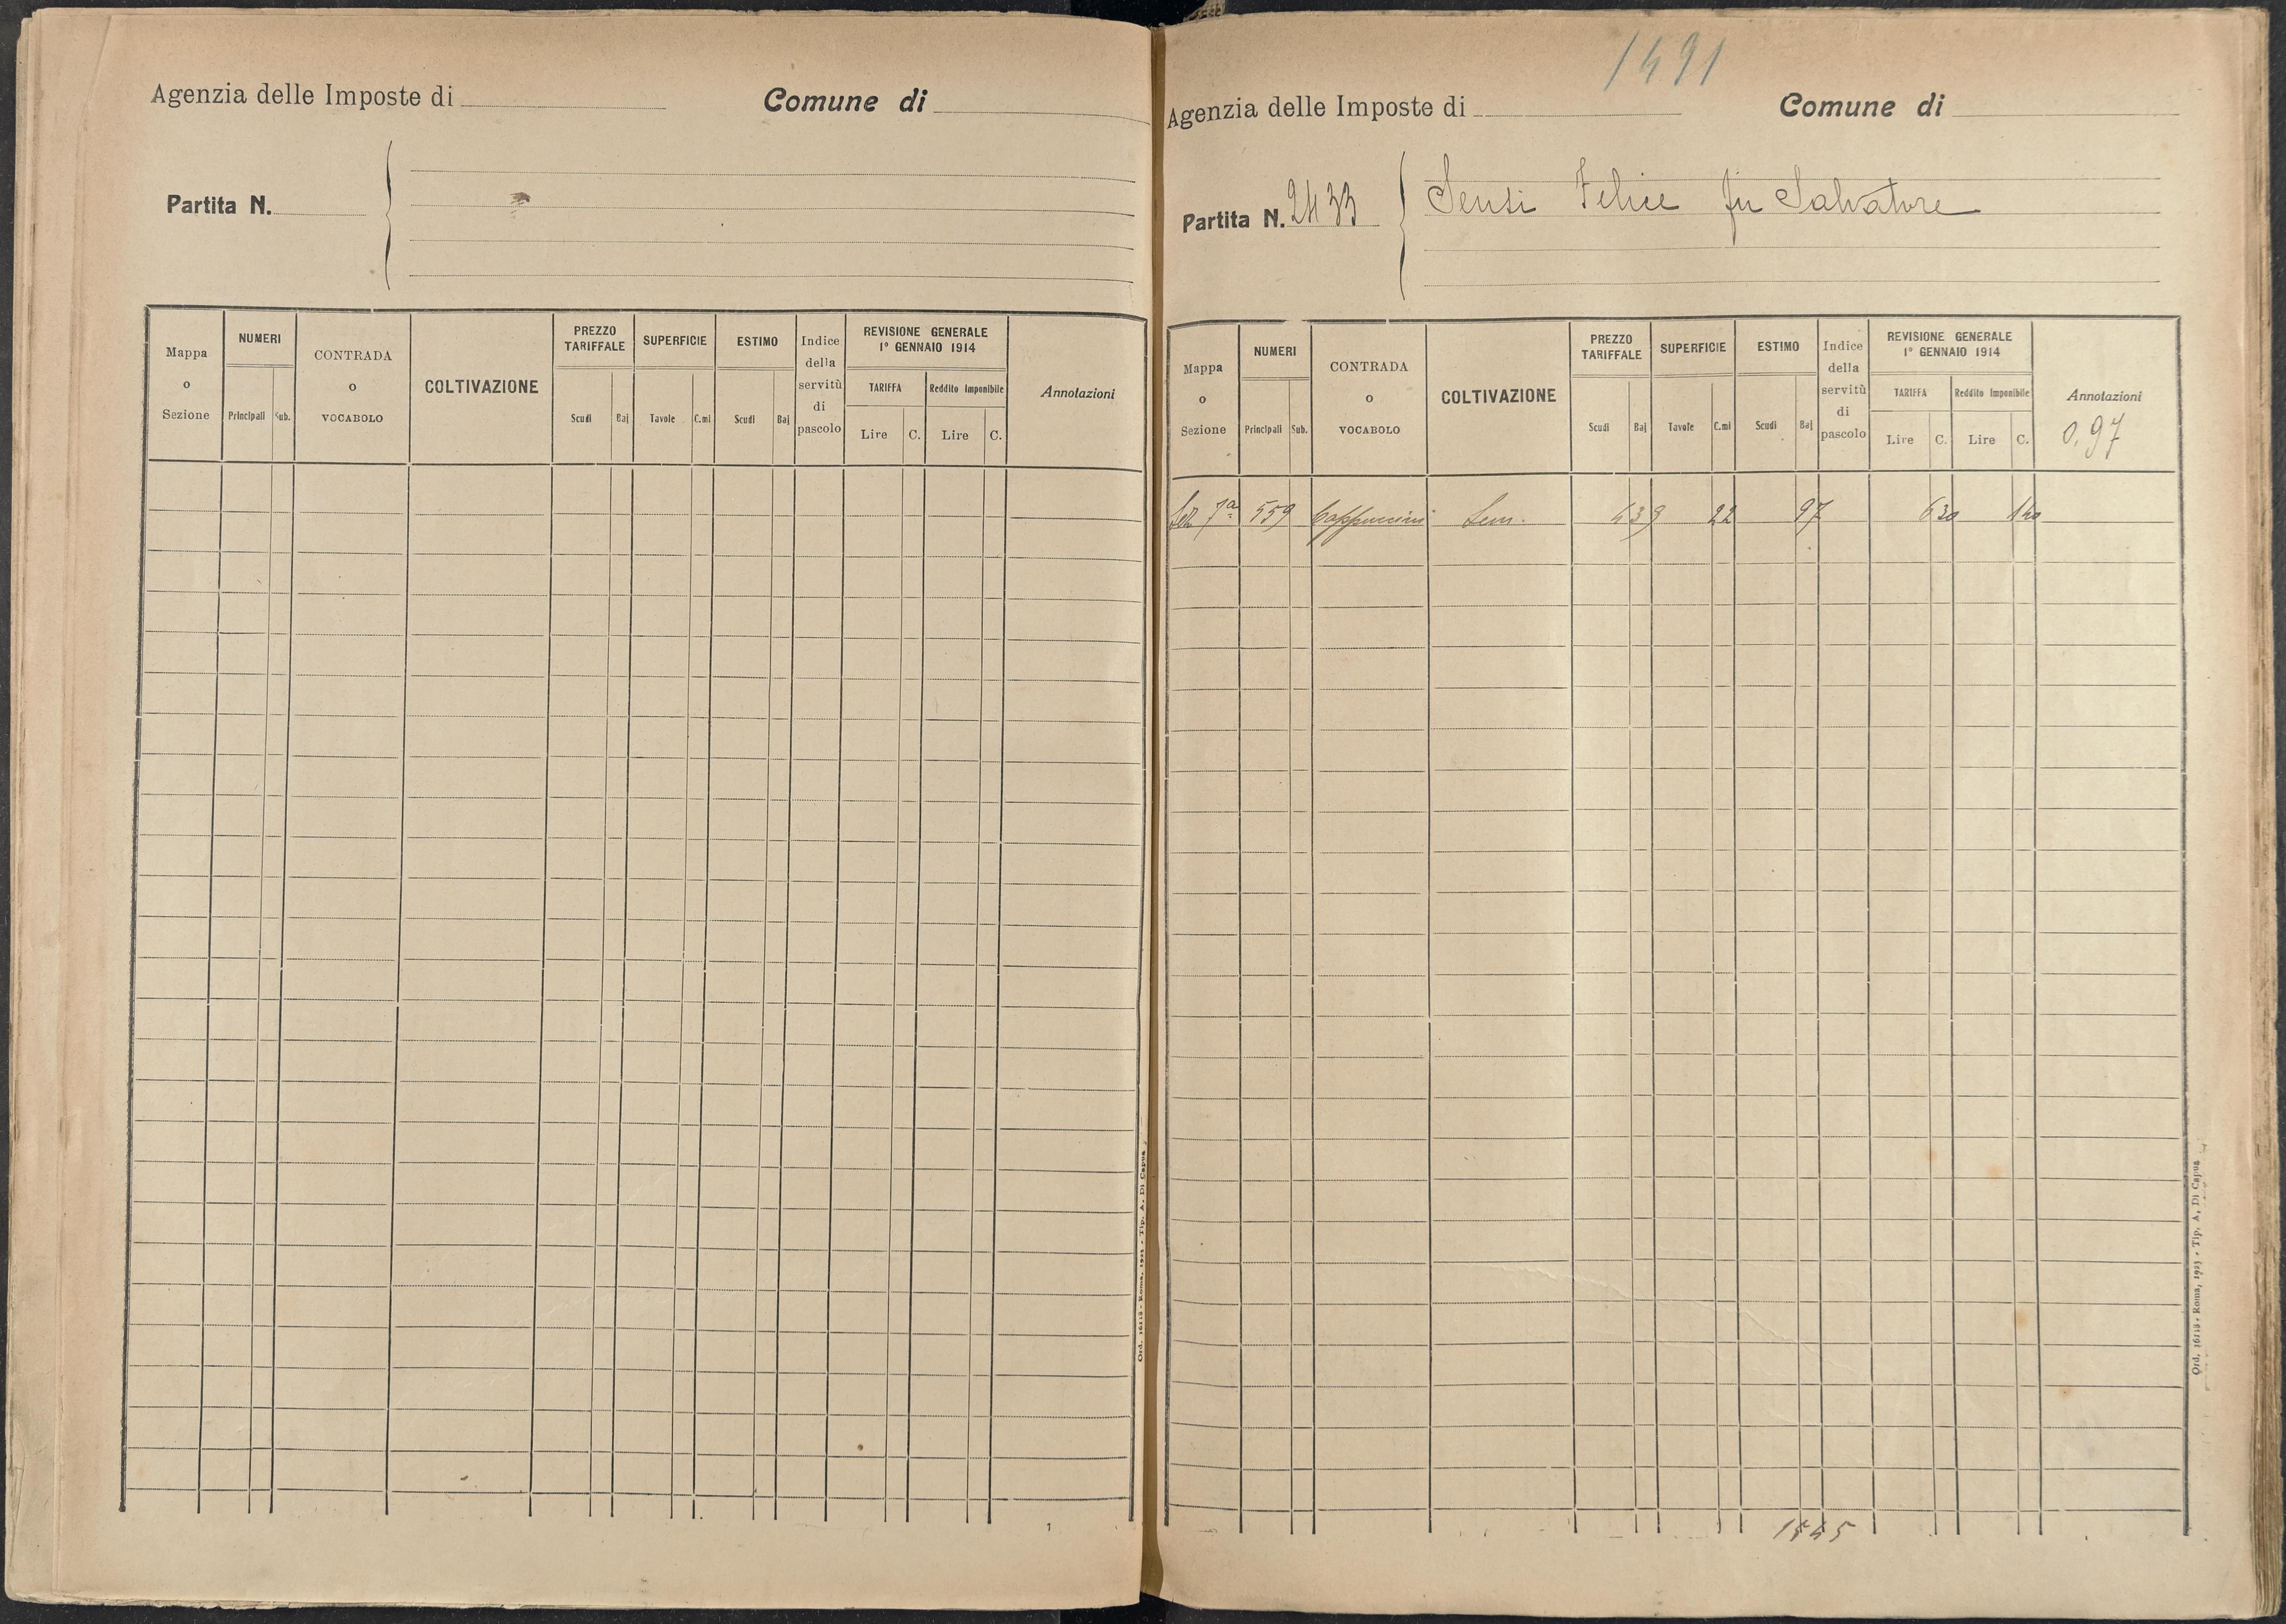 Agenzia delle Imposte di Comune di
Partita N.
Mappa o Sezione
NUMERI
Principali Sub.
CONTRADA o VOCABOLO
COLTIVAZIONE
PREZZO TARIFFALE
Scudi Baj
SUPERFICIE
Tavole C.mi
ESTIMO
Scudi Baj
Indice della servitù di pascolo
REVISIONE GENERALE
1° GENNAIO 1914
TARIFFA
Lire C.
Reddito Imponibile
Lire C.
Annotazioni
Ord. 16118 - Roma, 1923 - Tip. A. Di Capua
1491
Agenzia delle Imposte di Comune di
Partita N. 2433
Sensi Felice fu Salvatore
Mappa o Sezione
NUMERI
Principali Sub.
CONTRADA o VOCABOLO
COLTIVAZIONE
PREZZO TARIFFALE
Scudi Baj
SUPERFICIE
Tavole C.mi
ESTIMO
Scudi Baj
Indice della servitù di pascolo
REVISIONE GENERALE
1° GENNAIO 1914
TARIFFA
Lire C.
Reddito Imponibile
Lire C.
Annotazioni
0,97
Sez 7ª 559 Cappuccini Sem. 439 22 97 630 140
Ord. 16118 - Roma, 1923 - Tip. A. Di Capua